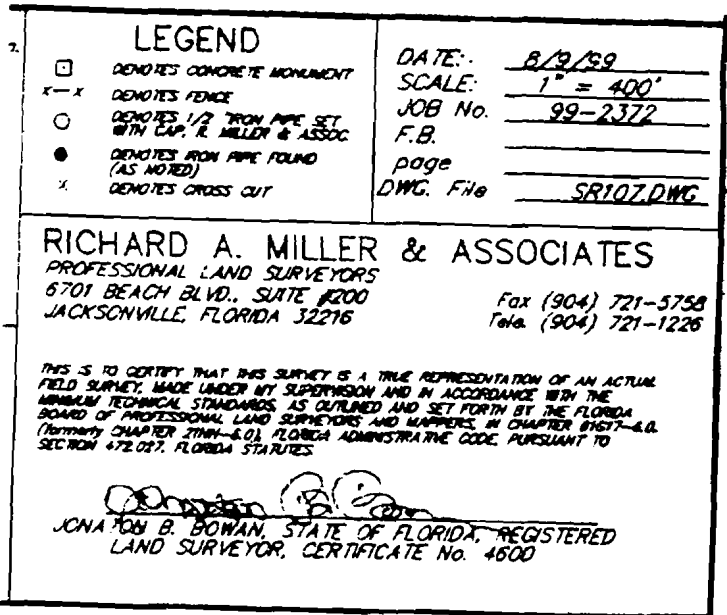 LEGEND
DENOTES CONCRETE MONUMENT
x—x DENOTES FENCE
DENOTES 1/2 "IRON PIPE SET
WITH CAP, R. MILLER & ASSOC
DENOTES IRON PIPE FOUND
(AS NOTED)
x DENOTES CROSS CUT
DATE: 8/9/99
SCALE: 1" = 400'
JOB No. 99-2372
F.B.
page
DWG. File SR107.DWG
RICHARD A. MILLER & ASSOCIATES
PROFESSIONAL LAND SURVEYORS
6701 BEACH BLVD., SUITE #200
JACKSONVILLE, FLORIDA 32216
Fax (904) 721-5758
Tele. (904) 721-1226
THIS IS TO CERTIFY THAT THIS SURVEY IS A TRUE REPRESENTATION OF AN ACTUAL
FIELD SURVEY, MADE UNDER MY SUPERVISION AND IN ACCORDANCE WITH THE
MINIMUM TECHNICAL STANDARDS, AS OUTLINED AND SET FORTH BY THE FLORIDA
BOARD OF PROFESSIONAL LAND SURVEYORS AND MAPPERS, IN CHAPTER 61G17-6.0.
(formerly CHAPTER 21HH-6.0), FLORIDA ADMINISTRATIVE CODE, PURSUANT TO
SECTION 472.027, FLORIDA STATUTES
JONATON B. BOWAN, STATE OF FLORIDA, REGISTERED
LAND SURVEYOR, CERTIFICATE No. 4600